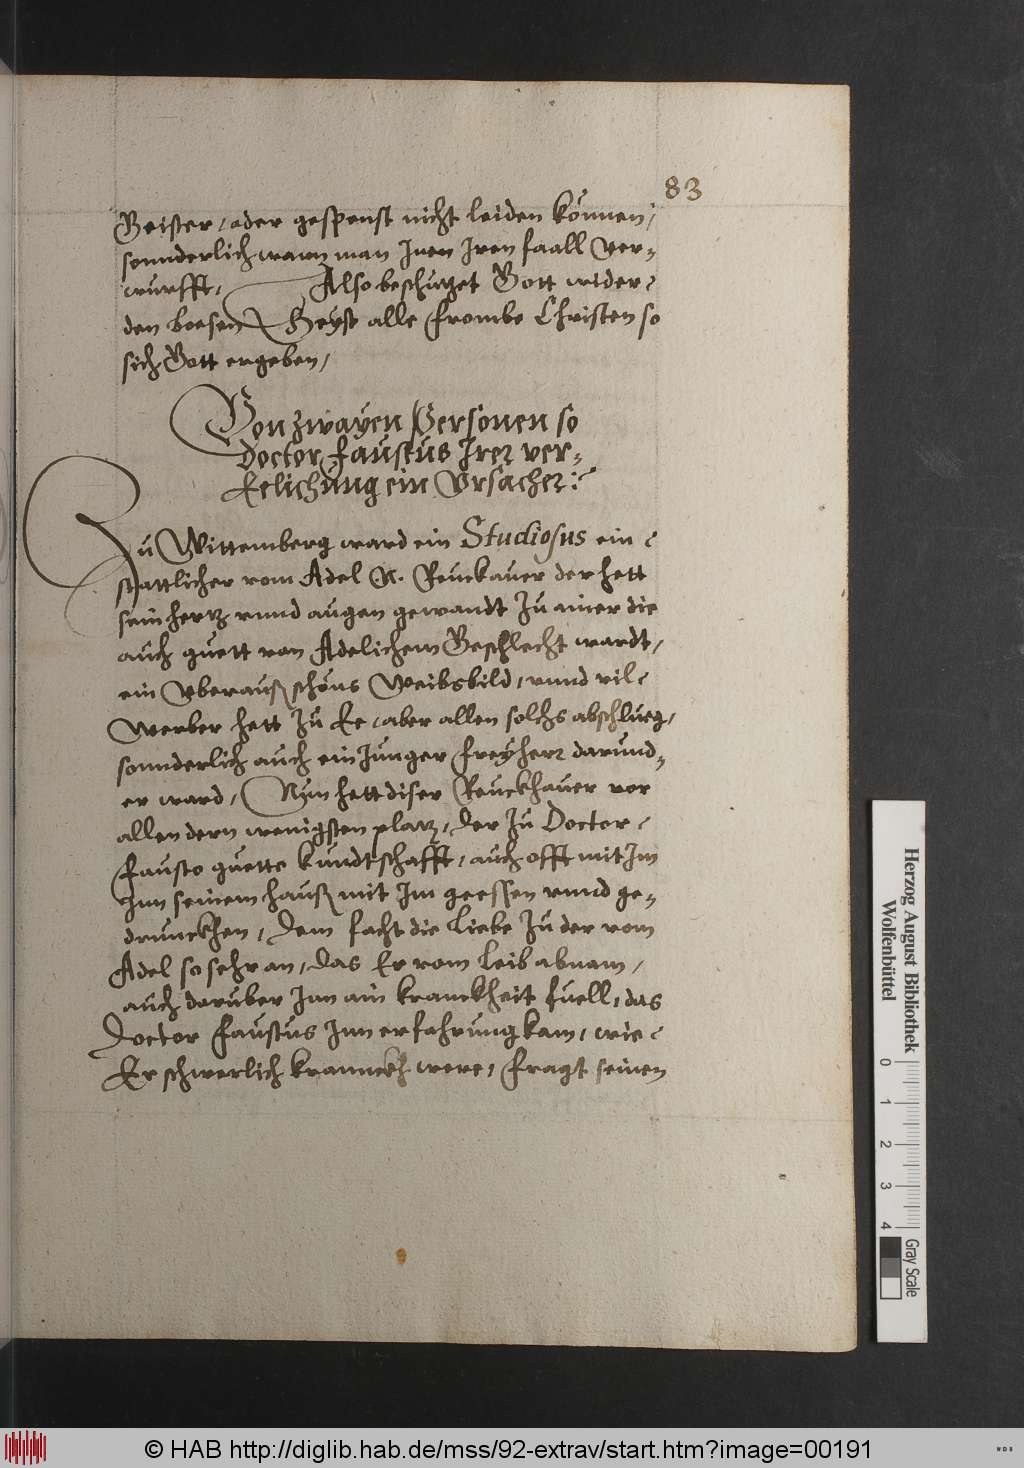 83
Geister, oder gespenst nicht leiden können,
sonnderlich wann man Inen Iren faall ver-
wurfft, Also beschutzet Gott wider
den boesen Geyst alle frombe Christen so
sich Gott ergeben,
Von zwayen Personen so
Doctor Faustus Irer ver-
Eelichung ein Vrsacher:
Zu Wittemberg ward ein Studiosus ein
stattlicher vom Adel N. Reuckauer der hett
sein hertz vnnd augen gewandt zu ainer die
auch guett von Adelichem Geschlecht wardt,
ein Vberauß schöns Weibsbild, vnnd vil
Werber hett zu Ee, aber allen solchs abschlueg,
sonnderlich auch ein Junger freyherr darund-
er ward, Nun hett diser Reuckhauer vor
allen dern wenigsten platz, der zu Doctor
Fausto guette kundtschafft, auch offt mit Im
Inn seinem hauß mit Im geessen vnnd ge-
drunckhen, dem facht die Liebe zu der vom
Adel so sehr an, das Er vom leib abnam,
auch daruber Inn ain kranckheit fuell, das
Doctor Faustus Inn erfahrung kam, wie
Er schwerlich kranckh were, fragt seinen
Herzog August Bibliothek
Wolfenbüttel
0 1 2 3 4
Gray Scale
© HAB http://diglib.hab.de/mss/92-extrav/start.htm?image=00191